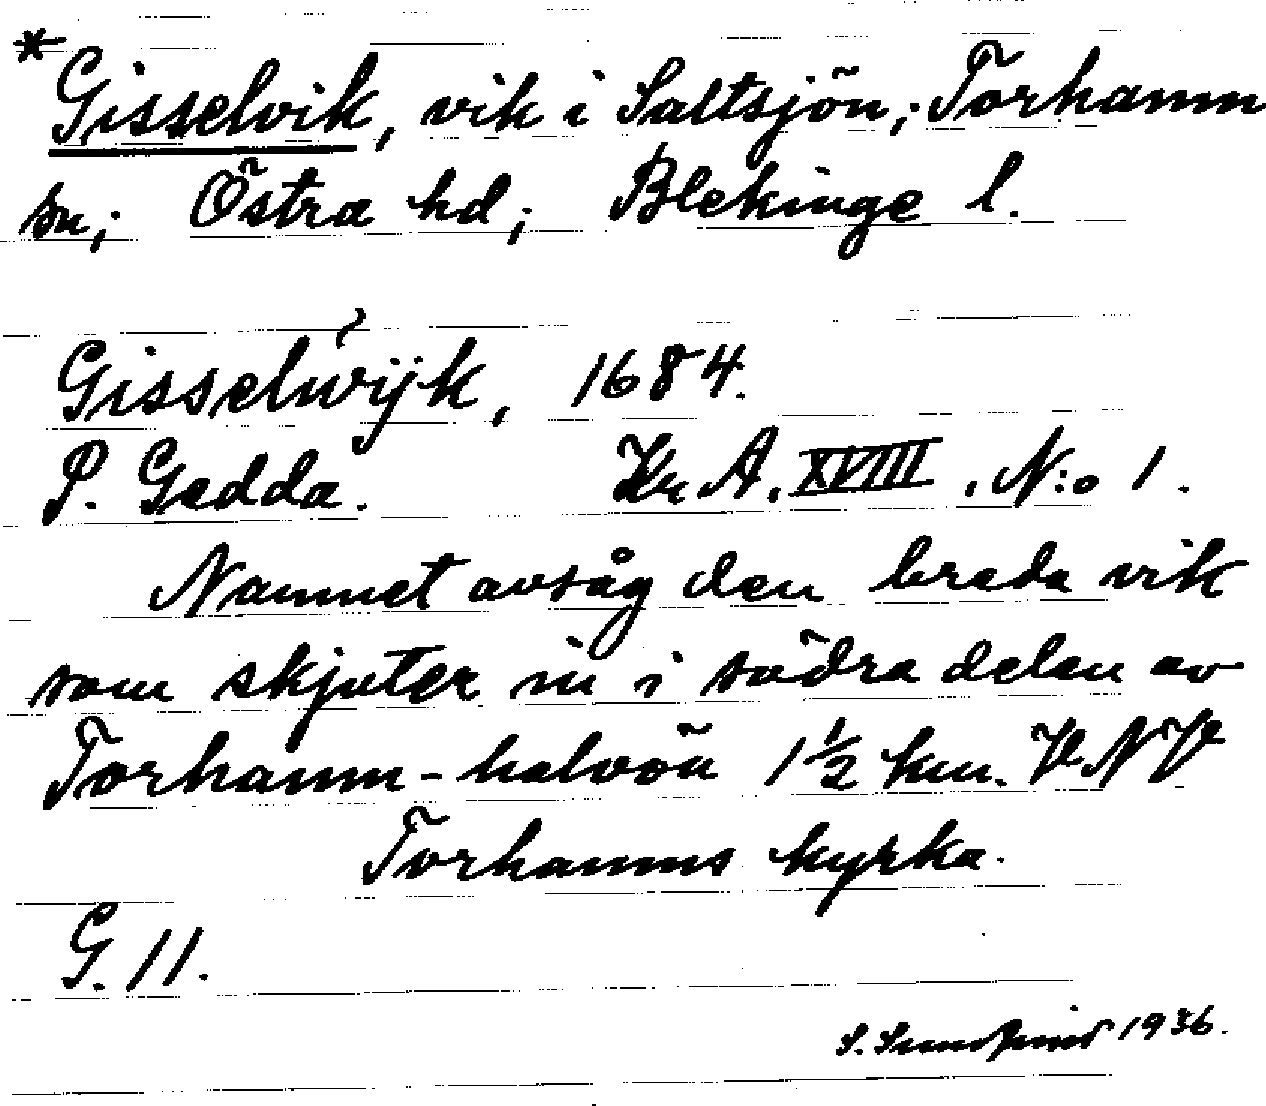 *Gisselvik, vik i Saltsjön; Torhamn
sn; Östra hd; Blekinge l.
Gisselwijk, 1684.
P. Gedda. Kr A. XVIII. N:o 1.
Namnet avsåg den breda vik
som skjuter in i södra delen av
Torhamn-halvön 1½ km. VNV
Torhamns kyrka.
G. 11.
S. 1936.